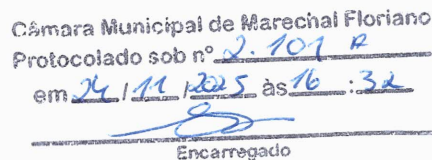 Câmara Municipal de Marechal Floriano
Protocolado sob nº 2.101 R
em 24 / 11 / 2025 às 16 : 32
Encarregado